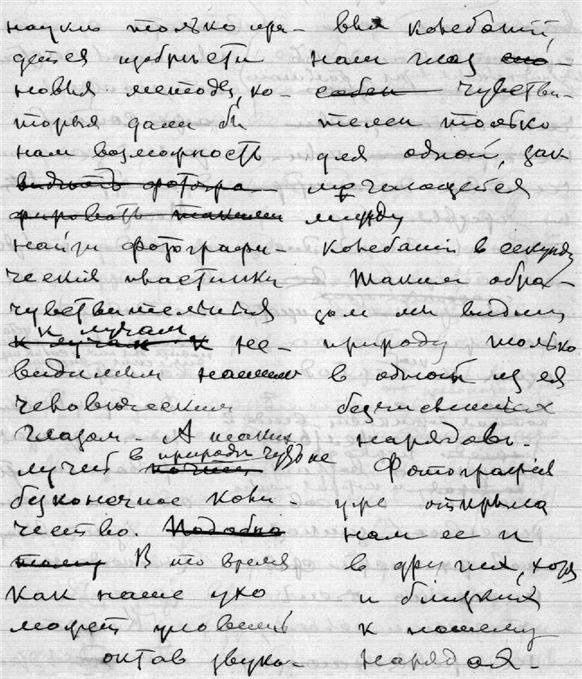 науки только при-
дется изобрѣсти
новыя методы, ко-
торыя дали бы
нам возможность
видѣть фотогра-
фировать такими
найти фотографи-
ческія пластинки
чувствительныя
к лучам
к лучам к не-
видимым нашим
человѣческим
глазом. А таких
лучей в природѣ чуть не
безконечное коли-
чество. Подобно
тому В то время
как наше ухо
может уловить
октав звуко-
вых колебаній,
наш глаз спо-
собен чувстви-
телен только
для одной, зак
лючающейся
между
колебаній в секунду
Таким обра-
зом мы видим
природу только
в одном из ея
безчисленных
нарядов.
Фотографія
уже открыла
нам ее и
в других, хотя
и близких
к нашему
нарядах.